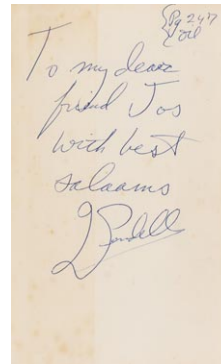 Pg 247
oil
To my dear
friend Jos
with best
salaams